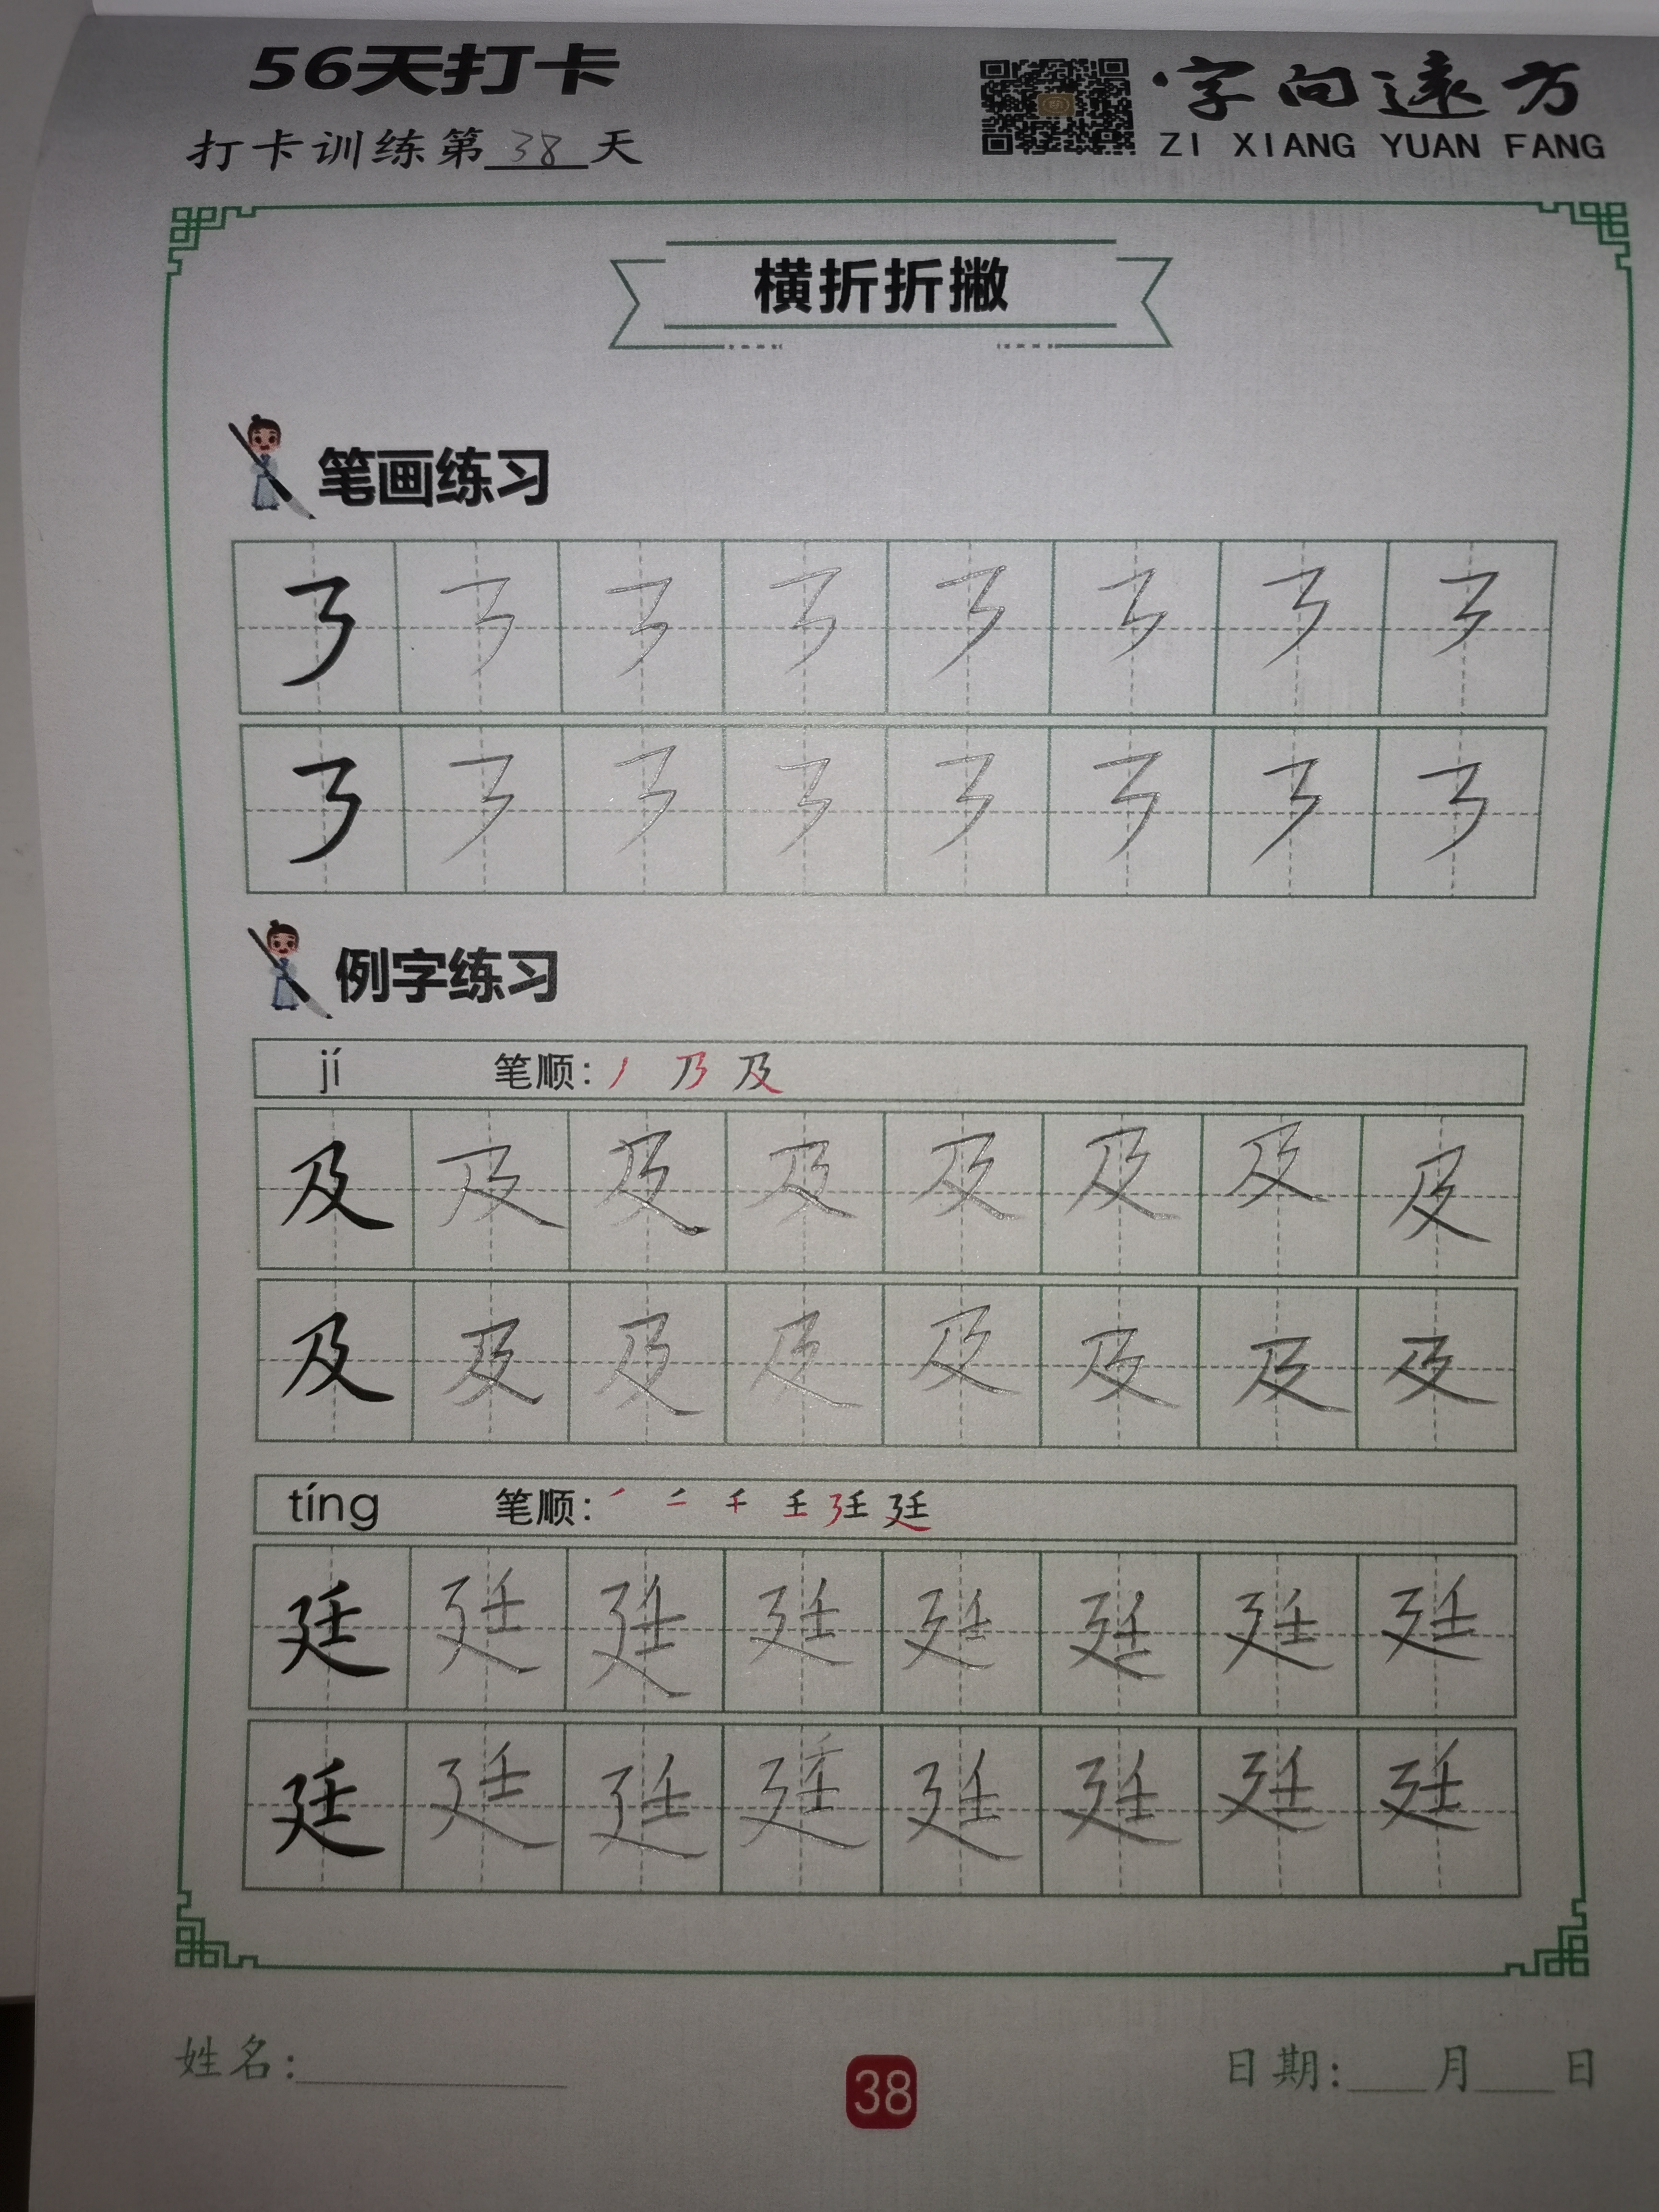 56天打卡
字向遠方
打卡训练第38天
ZI XIANG YUAN FANG
横折折撇
笔画练习
㇋ ㇋ ㇋ ㇋ ㇋ ㇋ ㇋ ㇋
㇋ ㇋ ㇋ ㇋ ㇋ ㇋ ㇋ ㇋
例字练习
jí 笔顺：丿 乃 及
及 及 及 及 及 及 及 及
及 及 及 及 及 及 及 及
tíng 笔顺： 廷
廷 廷 廷 廷 廷 廷 廷 廷
廷 廷 廷 廷 廷 廷 廷 廷
姓名：
38
日期：___月___日